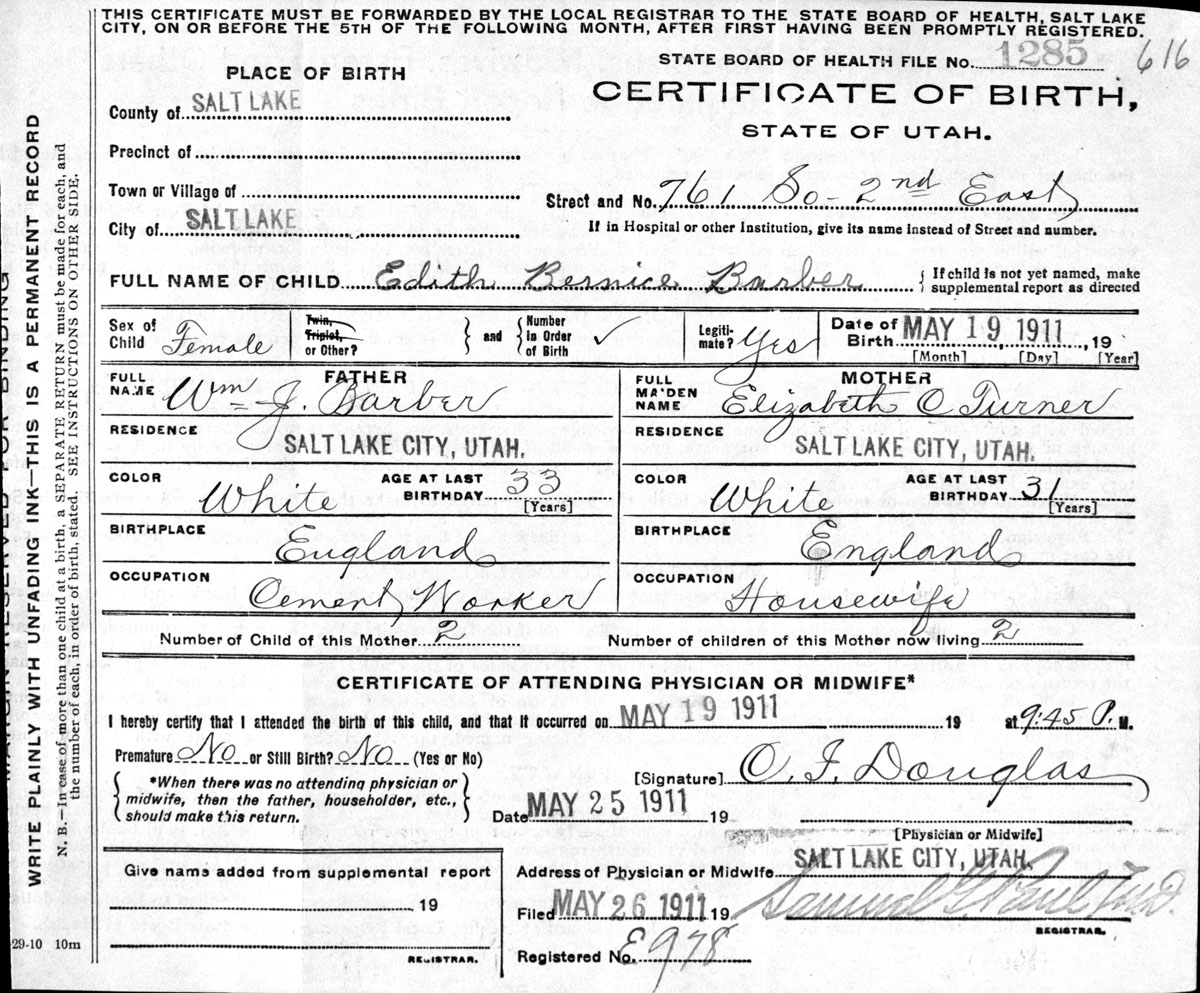 THIS CERTIFICATE MUST BE FORWARDED BY THE LOCAL REGISTRAR TO THE STATE BOARD OF HEALTH, SALT LAKE
CITY, ON OR BEFORE THE 5TH OF THE FOLLOWING MONTH, AFTER FIRST HAVING BEEN PROMPTLY REGISTERED.
STATE BOARD OF HEALTH FILE No. 1285 616
PLACE OF BIRTH
CERTIFICATE OF BIRTH,
STATE OF UTAH.
County of SALT LAKE
Precinct of
Town or Village of
City of SALT LAKE
Street and No. 761 So - 2nd East
If in Hospital or other Institution, give its name instead of Street and number.
FULL NAME OF CHILD Edith Bernice Barber { If child is not yet named, make
supplemental report as directed
Sex of
Child Female
Twin,
Triplet,
or Other?
} and { Number
in Order
of Birth ✓
Legiti-
mate? Yes
Date of
Birth MAY 19 1911, 19
[Month] [Day] [Year]
FATHER
FULL
NAME Wm J. Barber
RESIDENCE
SALT LAKE CITY, UTAH.
COLOR White
AGE AT LAST
BIRTHDAY 33
[Years]
BIRTHPLACE
England
OCCUPATION
Cement Worker
MOTHER
FULL
MAIDEN
NAME Elizabeth C Turner
RESIDENCE
SALT LAKE CITY, UTAH.
COLOR White
AGE AT LAST
BIRTHDAY 31
[Years]
BIRTHPLACE
England
OCCUPATION
Housewife
Number of Child of this Mother 2 Number of children of this Mother now living 2
CERTIFICATE OF ATTENDING PHYSICIAN OR MIDWIFE*
I hereby certify that I attended the birth of this child, and that it occurred on MAY 19 1911 19 at 9:45 P. M.
Premature No or Still Birth? No (Yes or No)
{ *When there was no attending physician or
midwife, then the father, householder, etc.,
should make this return. }
[Signature] O. J. Douglas
Date MAY 25 1911 19
[Physician or Midwife]
Address of Physician or Midwife SALT LAKE CITY, UTAH.
Filed MAY 26 1911 19 Samuel G. Paul
REGISTRAR.
Registered No. E978
Give name added from supplemental report
19
REGISTRAR.
29-10 10m
MARGIN RESERVED FOR BINDING
WRITE PLAINLY WITH UNFADING INK—THIS IS A PERMANENT RECORD
N. B.—In case of more than one child at a birth, a SEPARATE RETURN must be made for each, and
the number of each, in order of birth, stated. SEE INSTRUCTIONS ON OTHER SIDE.